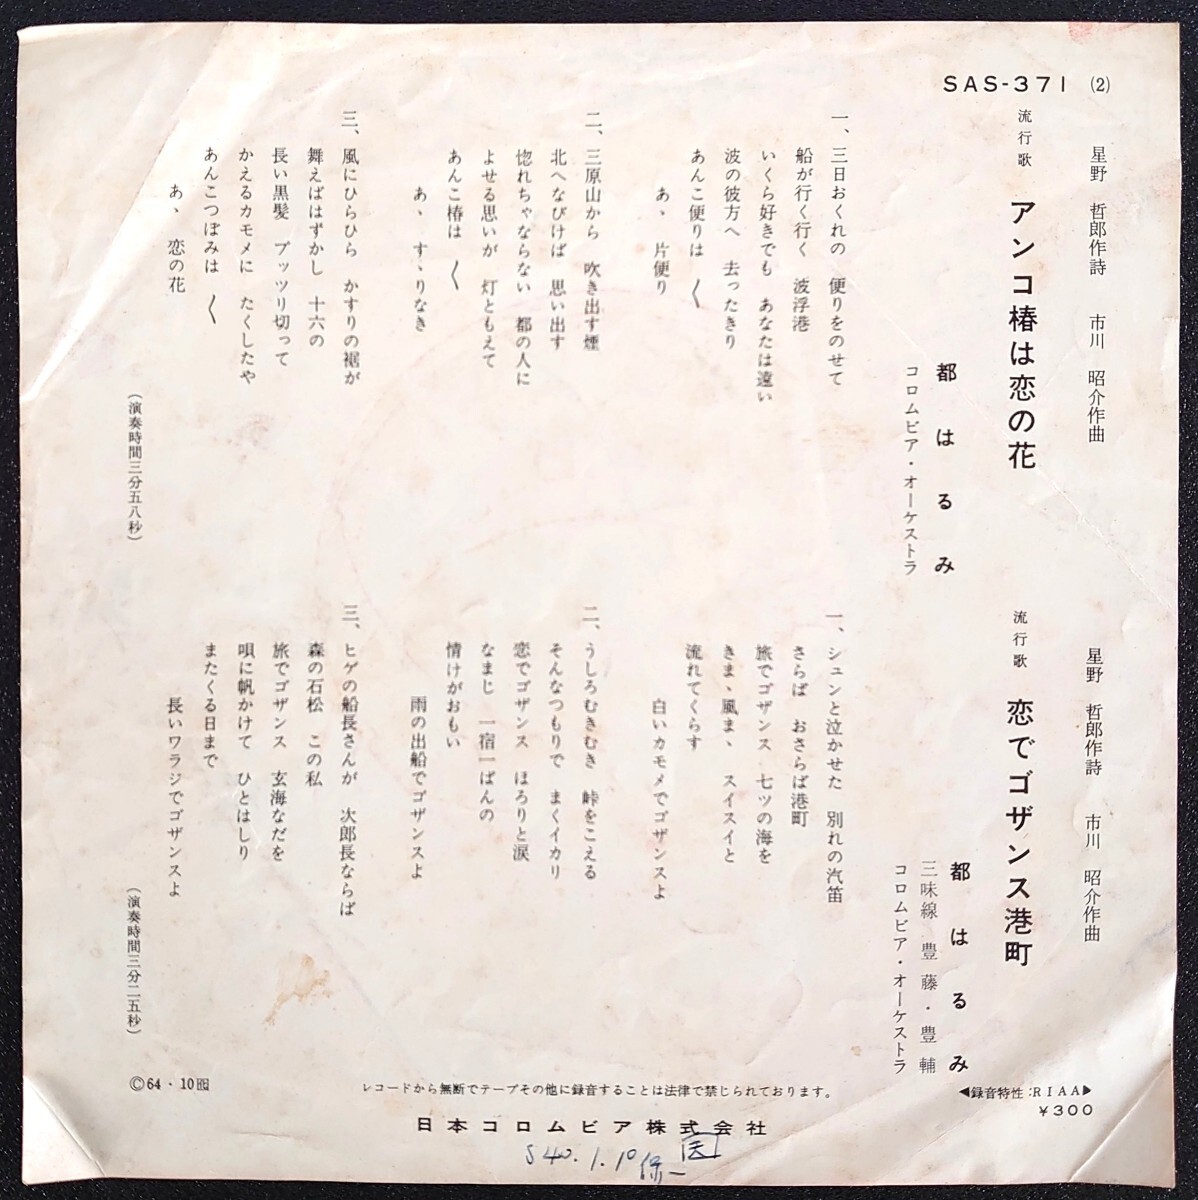 SAS-371 (2)
星野 哲郎作詩 市川 昭介作曲
流行歌 アンコ椿は恋の花
都はるみ
コロムビア・オーケストラ
一、三日おくれの 便りをのせて
船が行く行く 波浮港
いくら好きでも あなたは遠い
波の彼方へ 去ったきり
あんこ便りは 〱
あゝ 片便り
二、三原山から 吹き出す煙
北へなびけば 思い出す
惚れちゃならない 都の人に
よせる思いが 灯ともえて
あんこ椿は 〱
あゝ すゝりなき
三、風にひらひら かすりの裾が
舞えばはずかし 十六の
長い黒髪 プッツリ切って
かえるカモメに たくしたや
あんこつぼみは 〱
あゝ 恋の花
(演奏時間三分五八秒)
星野 哲郎作詩 市川 昭介作曲
流行歌 恋でゴザンス港町
都はるみ
三味線 豊藤・豊輔
コロムビア・オーケストラ
一、シュンと泣かせた 別れの汽笛
さらば おさらば港町
旅でゴザンス 七ツの海を
きまゝ風まゝ スイスイと
流れてくらす
白いカモメでゴザンスよ
二、うしろむきむき 峠をこえる
そんなつもりで まくイカリ
恋でゴザンス ほろりと涙
なまじ 一宿一ぱんの
情けがおもい
雨の出船でゴザンスよ
三、ヒゲの船長さんが 次郎長ならば
森の石松 この私
旅でゴザンス 玄海なだを
唄に帆かけて ひとはしり
またくる日まで
長いワラジでゴザンスよ
(演奏時間三分二五秒)
Ⓒ64・10
レコードから無断でテープその他に録音することは法律で禁じられております。
◀録音特性:RIAA▶
¥300
日本コロムビア株式会社
S40.1.10